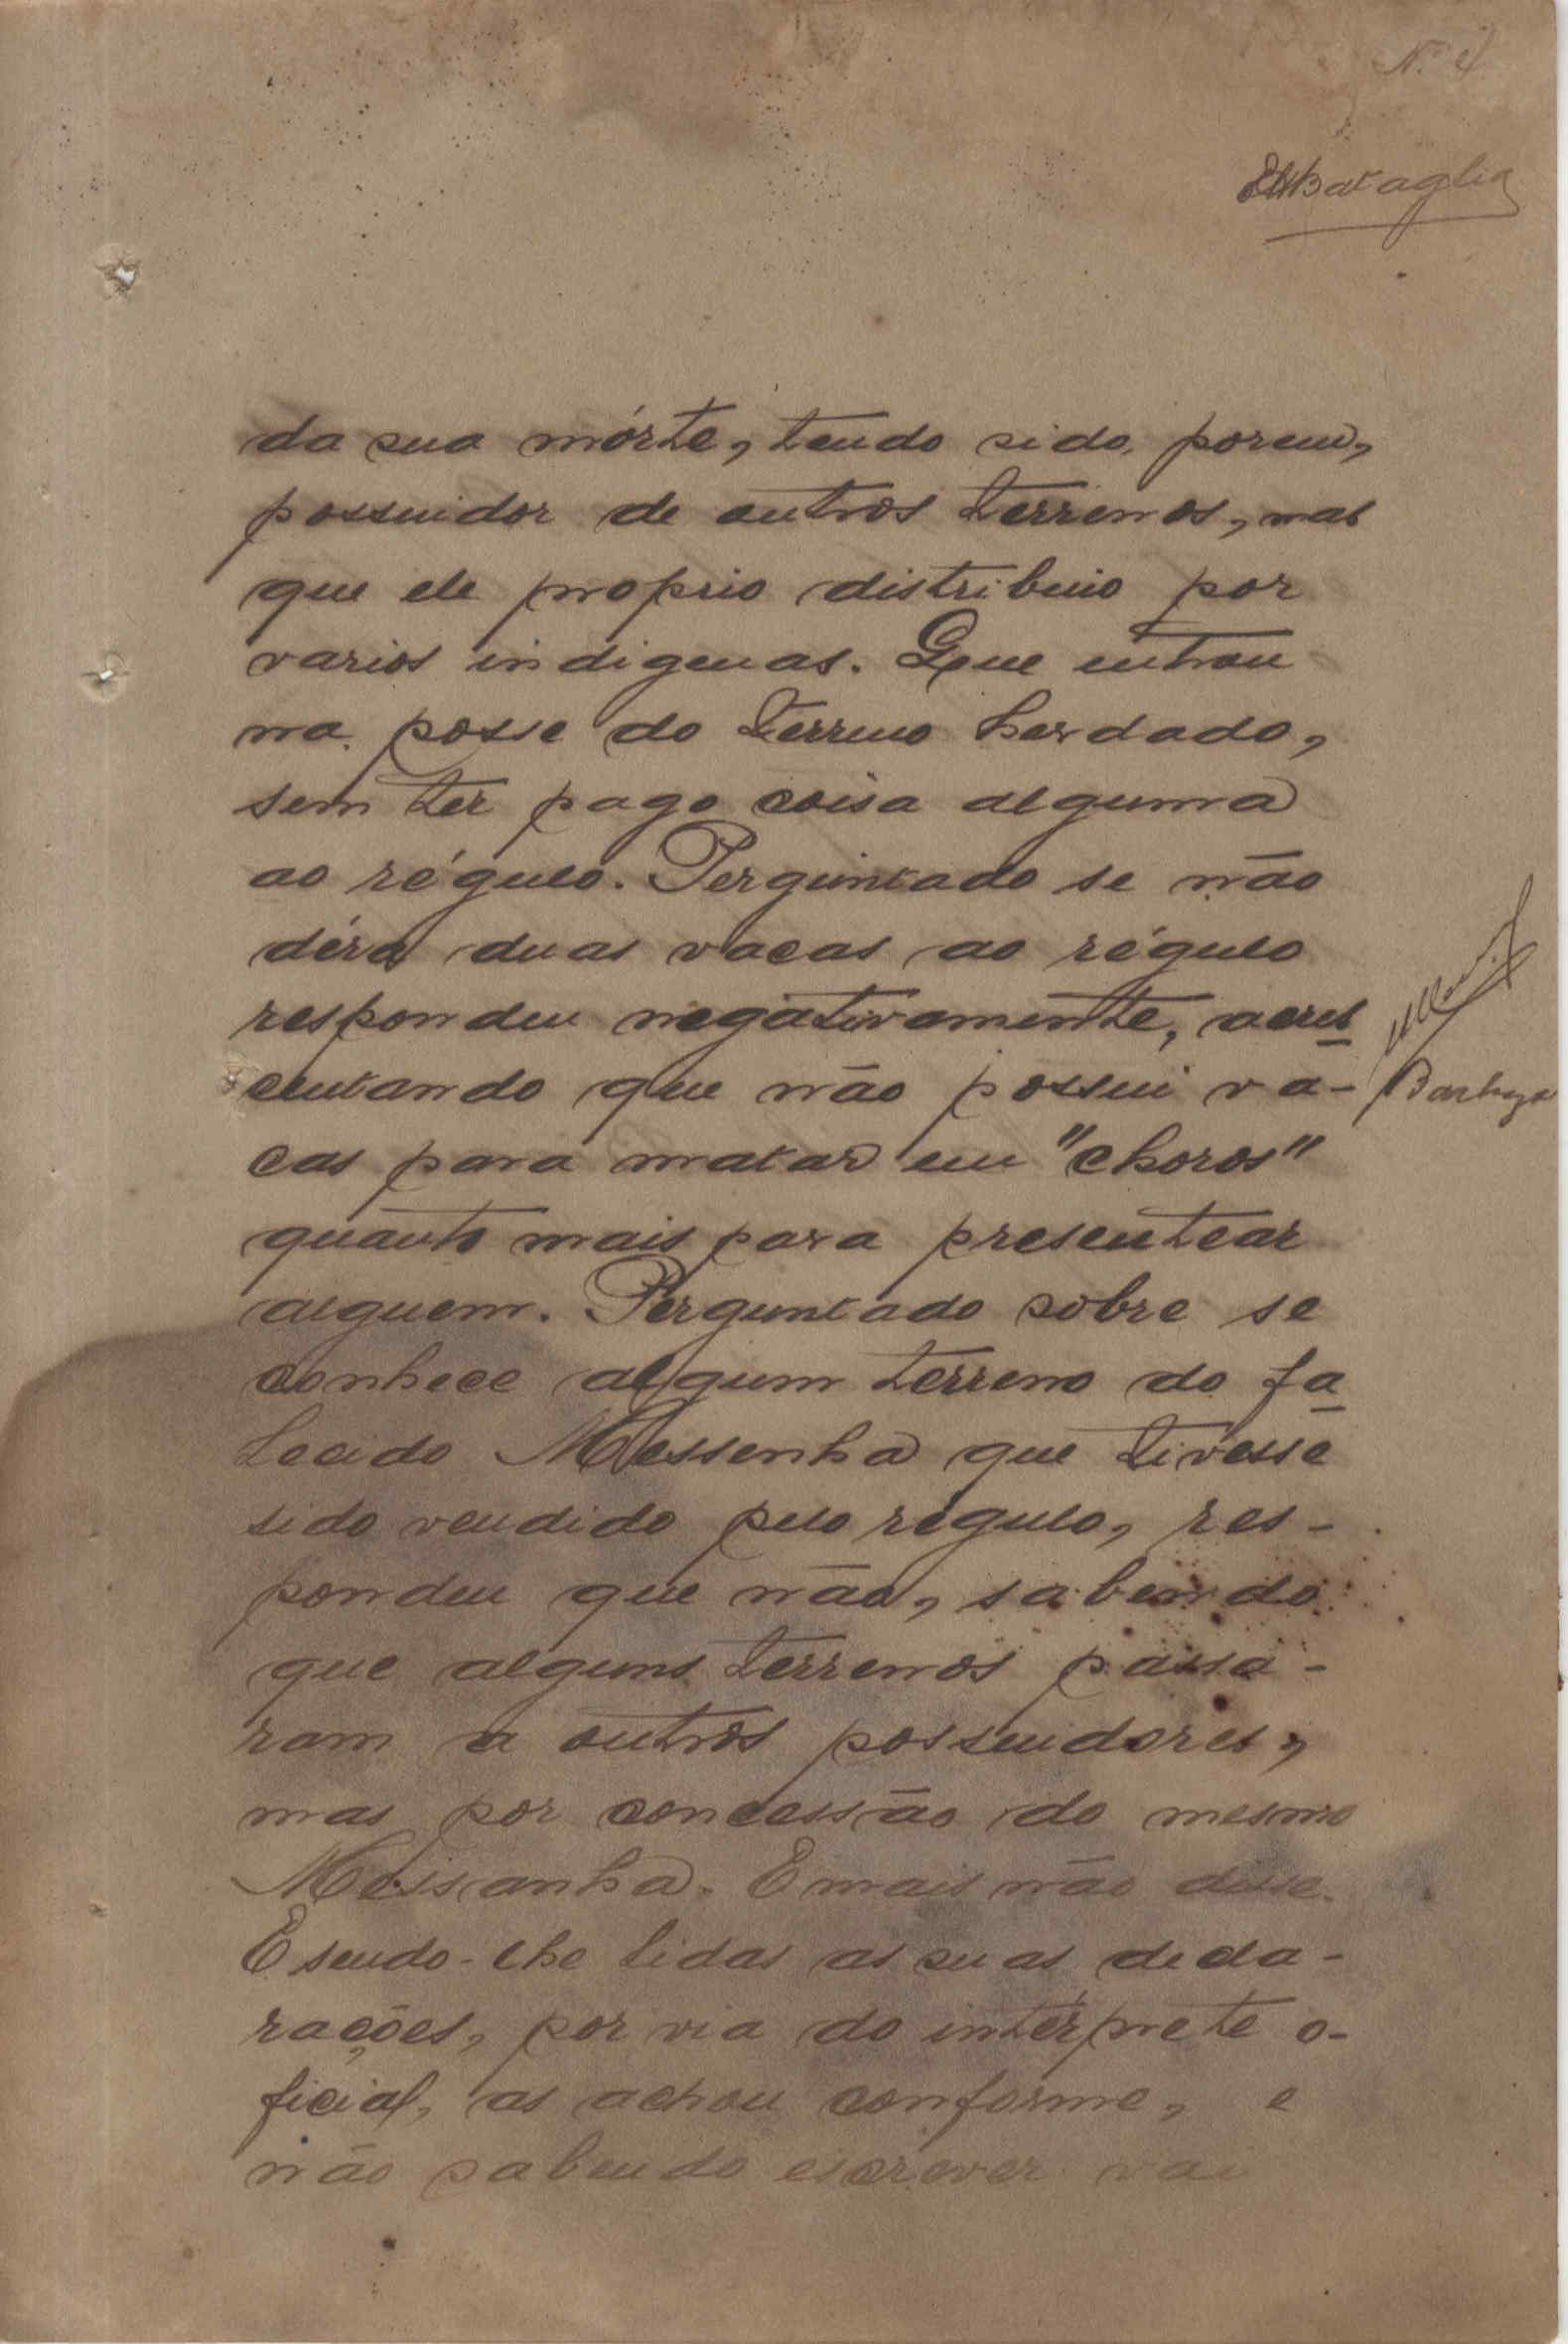 Nº 4
Battaglia
da sua mórte, tendo sido, porem,
possuidor de outros terrenos, mas
que ele proprio distribuio por
varios indigenas. Que entrou
na posse do terreno herdado,
sem ter pago coisa alguma
ao régulo. Perguntado se não
déra duas vacas ao régulo
respondeu negativamente, acres
centando que não possui va-
cas para matar em "choros"
quanto mais para presentear
alguem. Perguntado sobre se
conhece algum terreno do fa
lecido Messenha que tivesse
sido vendido pelo régulo, res-
pondeu que não, sabendo
que alguns terrenos passa-
ram a outros possuidores,
mas por concessão do mesmo
Messanha. E mais não disse.
E sendo-lhe lidas as suas decla-
rações, por via do intérprete o-
ficial, as achou conforme, e
não sabendo escrever vai